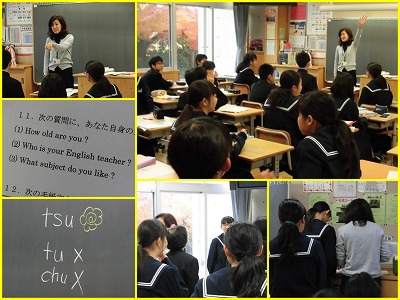 11．次の質問に、あなた自身の
(1) How old are you ?
(2) Who is your English teacher ?
(3) What subject do you like ?
12．次の手紙
tsu
tu x
chu x